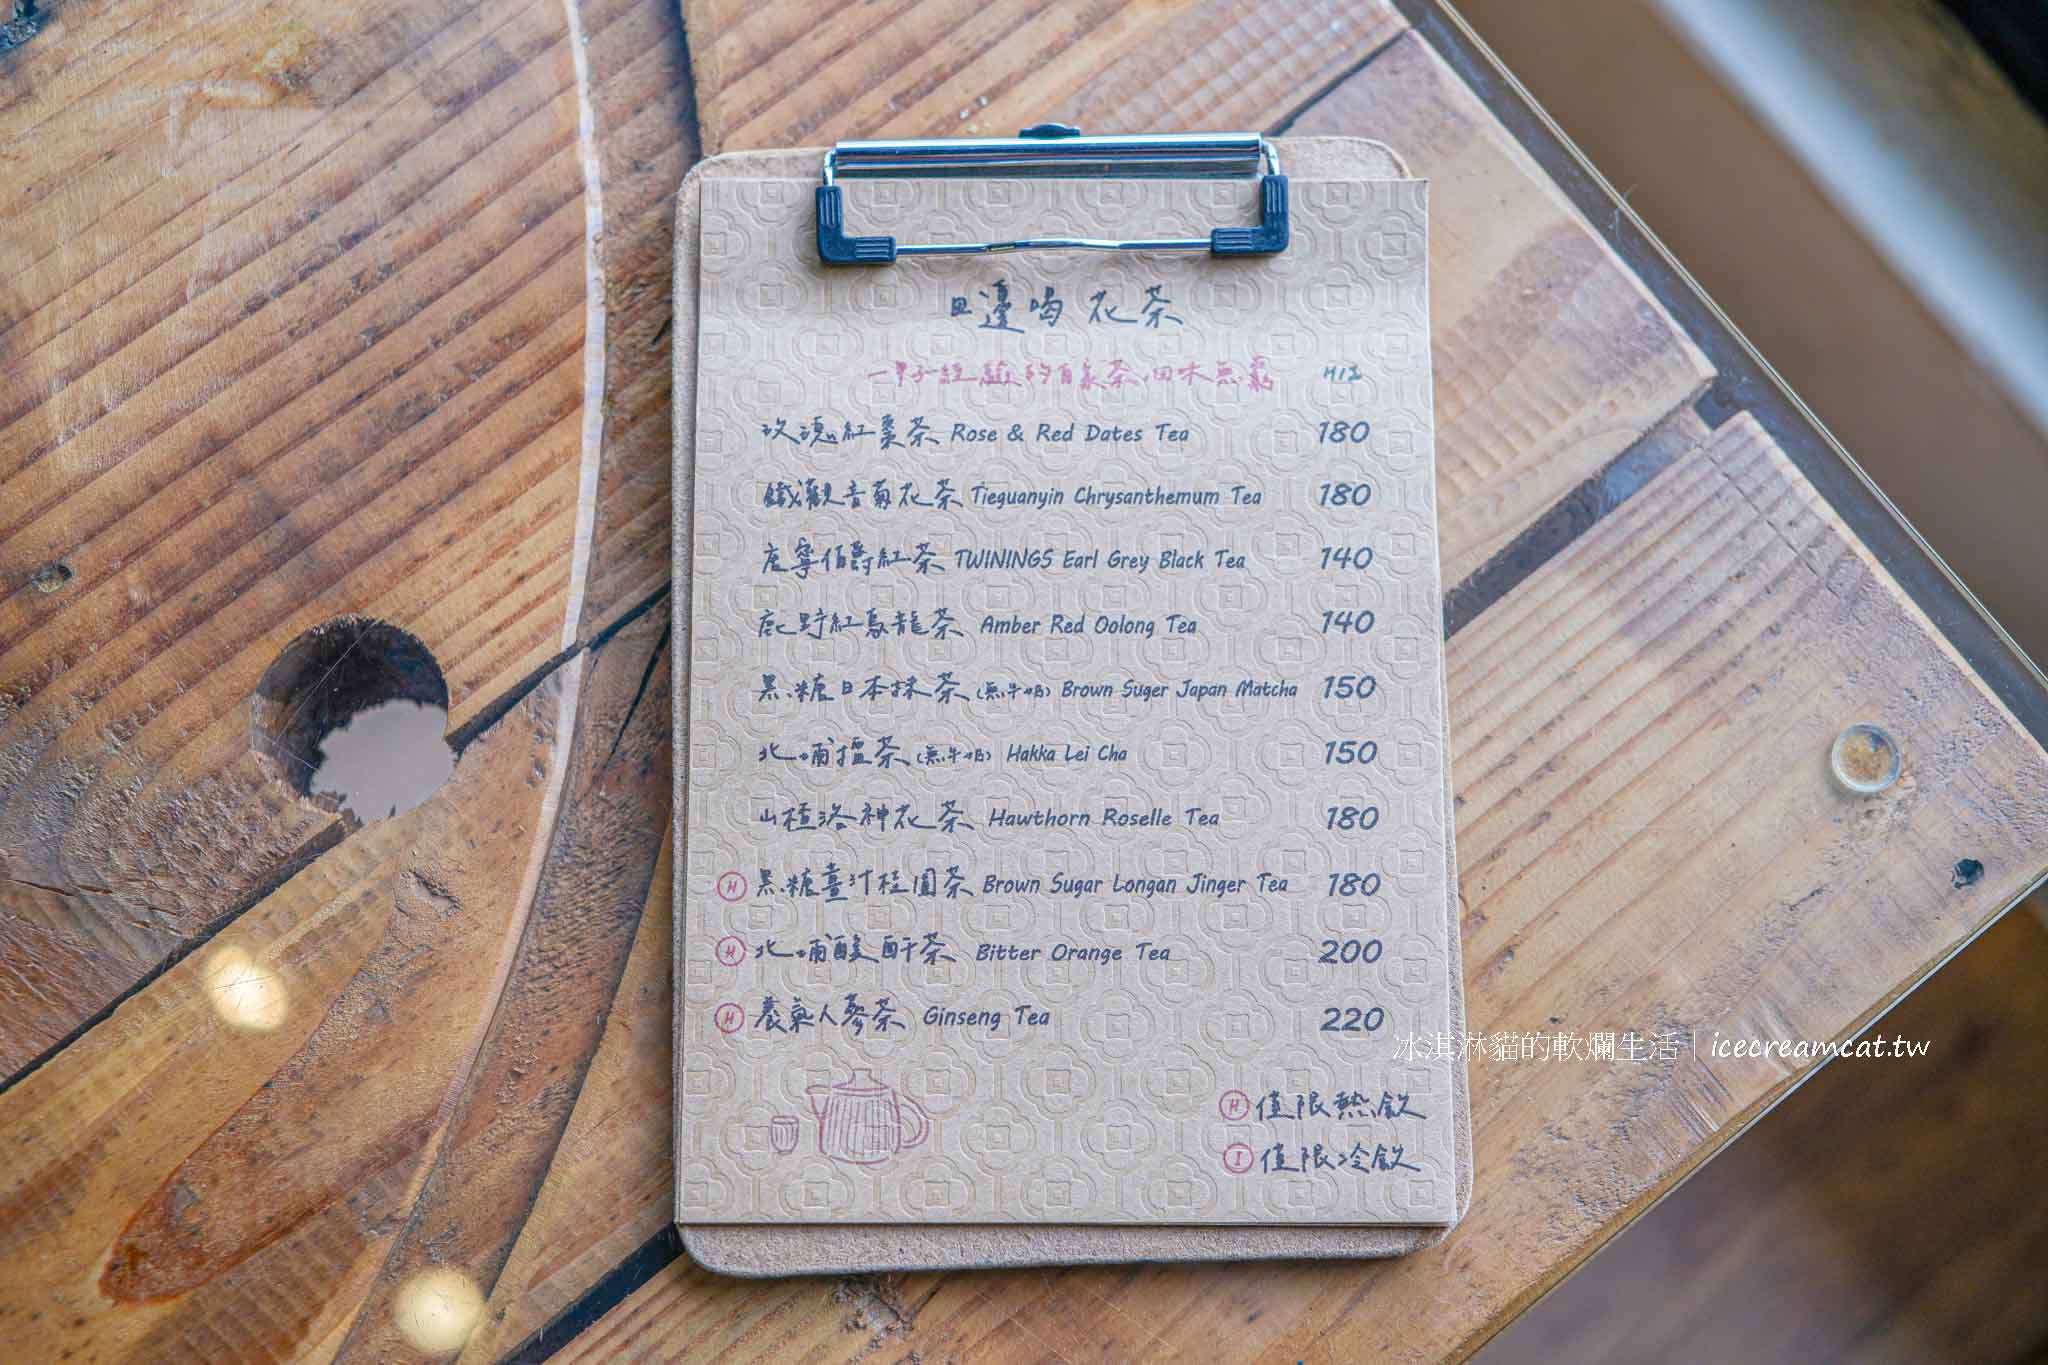 日邊喝花茶
一甲子經驗的百氣茶回味無窮 H I
玫瑰紅棗茶 Rose & Red Dates Tea 180
鐵觀音菊花茶 Tieguanyin Chrysanthemum Tea 180
唐寧伯爵紅茶 TWININGS Earl Grey Black Tea 140
鹿野紅烏龍茶 Amber Red Oolong Tea 140
黑糖日本抹茶(無牛奶) Brown Suger Japan Matcha 150
北埔擂茶(無牛奶) Hakka Lei Cha 150
山楂洛神花茶 Hawthorn Roselle Tea 180
H 黑糖薑汁桂圓茶 Brown Sugar Longan Jinger Tea 180
H 北埔酸酐茶 Bitter Orange Tea 200
H 養氣人蔘茶 Ginseng Tea 220
冰淇淋貓的軟爛生活｜icecreamcat.tw
H 僅限熱飲
I 僅限冷飲